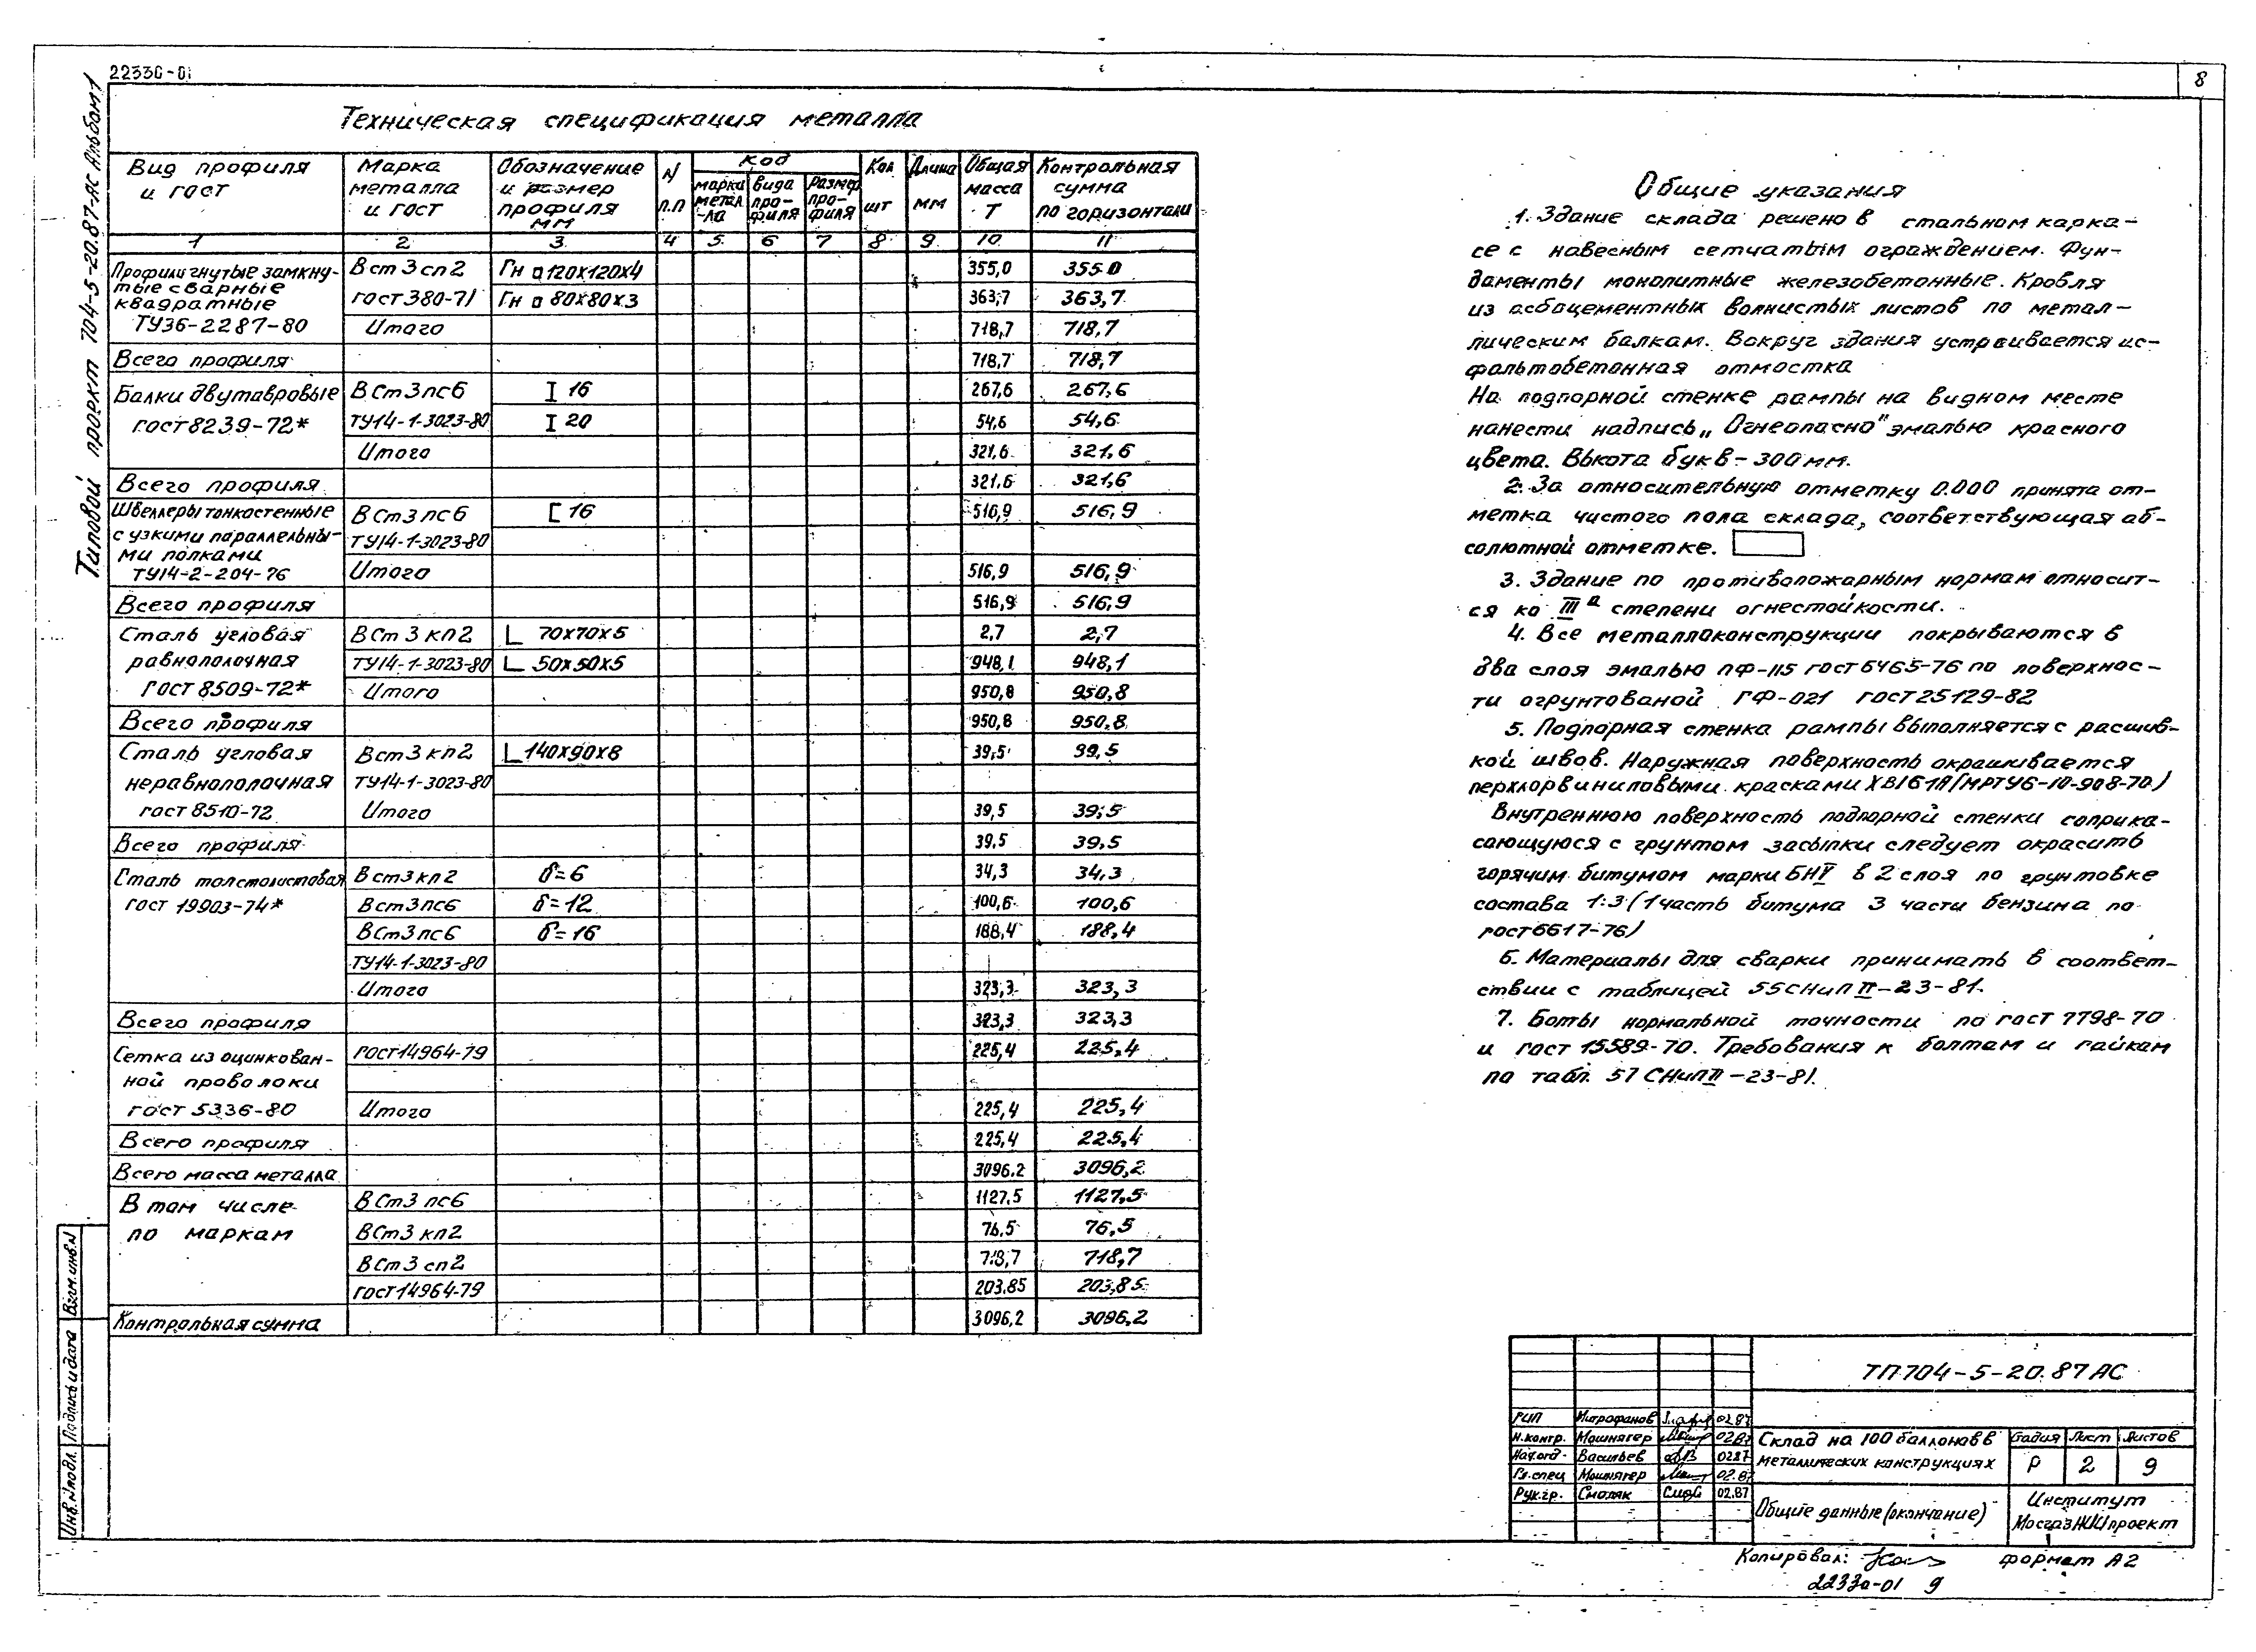 22330-01
8
Типовой проект 704-5-20.87-АС Альбом 1
Техническая спецификация металла
Вид профиля и гост | Марка металла и гост | Обозначение и размер профиля мм | N п.п | Код | Кол шт | Длина мм | Общая масса Т | Контрольная сумма по горизонтали
марки метал-ла | вида про-филя | размер про-филя
1 2 3 4 5 6 7 8 9 10 11
Профили гнутые замкну- ВСт3сп2 Гн □120х120х4 355,0 355.0
тые сварные
квадратные гост380-71 Гн □ 80х80х3 363,7 363,7
ТУ36-2287-80 Итого 718,7 718,7
Всего профиля 718,7 718,7
Балки двутавровые ВСт3пс6 I 16 267,6 267,6
гост8239-72* ТУ14-1-3023-80 I 20 54,6 54,6
Итого 321,6 321,6
Всего профиля 321,6 321,6
Швеллеры тонкостенные ВСт3пс6 [ 16 516,9 516,9
с узкими параллельны- ТУ14-1-3023-80
ми полками
ТУ14-2-204-76 Итого 516,9 516,9
Всего профиля 516,9 516,9
Сталь угловая ВСт3кп2 L 70х70х5 2,7 2,7
равнополочная ТУ14-1-3023-80 L 50х50х5 948,1 948,1
ГОСТ 8509-72* Итого 950,8 950,8
Всего профиля 950,8 950,8
Сталь угловая ВСт3кп2 L 140х90х8 39,5 39,5
неравнополочная ТУ14-1-3023-80
гост8510-72 Итого 39,5 39,5
Всего профиля 39,5 39,5
Сталь толстолистовая ВСт3кп2 δ=6 34,3 34,3
гост 19903-74* ВСт3пс6 δ=12 100,6 100,6
ВСт3пс6 δ=16 188,4 188,4
ТУ14-1-3023-80
Итого 323,3 323,3
Всего профиля 323,3 323,3
Сетка из оцинкован- ГОСТ14964-79 225,4 225,4
ной проволоки
гост 5336-80 Итого 225,4 225,4
Всего профиля 225,4 225,4
Всего масса металла 3096.2 3096,2
В том числе ВСт3пс6 1127,5 1127,5
по маркам ВСт3кп2 76,5 76,5
ВСт3сп2 718,7 718,7
гост14964-79 203.85 203,85
Контрольная сумма 3096,2 3096,2
Общие указания
1. Здание склада решено в стальном карка-
се с навесным сетчатым ограждением. Фун-
даменты монолитные железобетонные. Кровля
из асбоцементных волнистых листов по метал-
лическим балкам. Вокруг здания устраивается ас-
фальтобетонная отмостка
На подпорной стенке рампы на видном месте
нанести надпись „Огнеопасно" эмалью красного
цвета. Высота букв - 300 мм.
2. За относительную отметку 0.000 принята от-
метка чистого пола склада, соответствующая аб-
солютной отметке.
3. Здание по противопожарным нормам относит-
ся ко IIIа степени огнестойкости.
4. Все металлоконструкции покрываются в
два слоя эмалью ПФ-115 гост6465-76 по поверхнос-
ти огрунтованой ГФ-021 гост25129-82
5. Подпорная стенка рампы выполняется с расшив-
кой швов. Наружная поверхность окрашивается
перхлорвиниловыми красками ХВ161А (МРТУ6-10-908-70)
Внутреннюю поверхность подпорной стенки соприка-
сающуюся с грунтом засыпки следует окрасить
горячим битумом марки БНV в 2 слоя по грунтовке
состава 1:3 (1 часть битума 3 части бензина по
гост6617-76)
6. Материалы для сварки принимать в соответ-
ствии с таблицей 55 СНиП II-23-81.
7. Болты нормальной точности по гост 7798-70
и гост 15589-70. Требования к болтам и гайкам
по табл. 57 СНиП II-23-81.
Взам.инв.N
Подпись и дата
Инв.N подл.
ТП704-5-20.87 АС
ГИП Митрофанов 02.87
Н.контр. Мошнягер 02.87
Нач.отд. Васильев 02.87
Гл.спец Мошнягер 02.87
Рук.гр. Смоляк 02.87
Склад на 100 баллонов в
металлических конструкциях
Стадия Лист Листов
Р 2 9
Общие данные (окончание)
Институт
МосгазНИИпроект
Копировал:
формат А2
22330-01 9